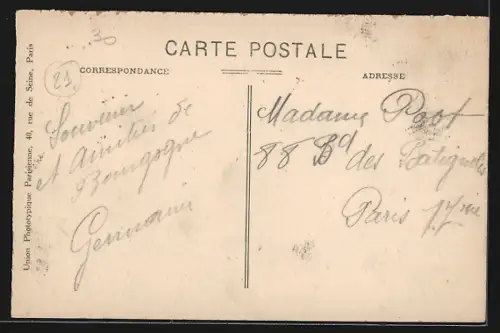 30
CARTE POSTALE
21
CORRESPONDANCE
ADRESSE
Souvenir
et Amitiés de
Bourgogne
Germaine
Madame Poot
88 Bd des Batignolles
Paris 17me
Union Phototypique Parisienne, 40, rue de Seine, Paris